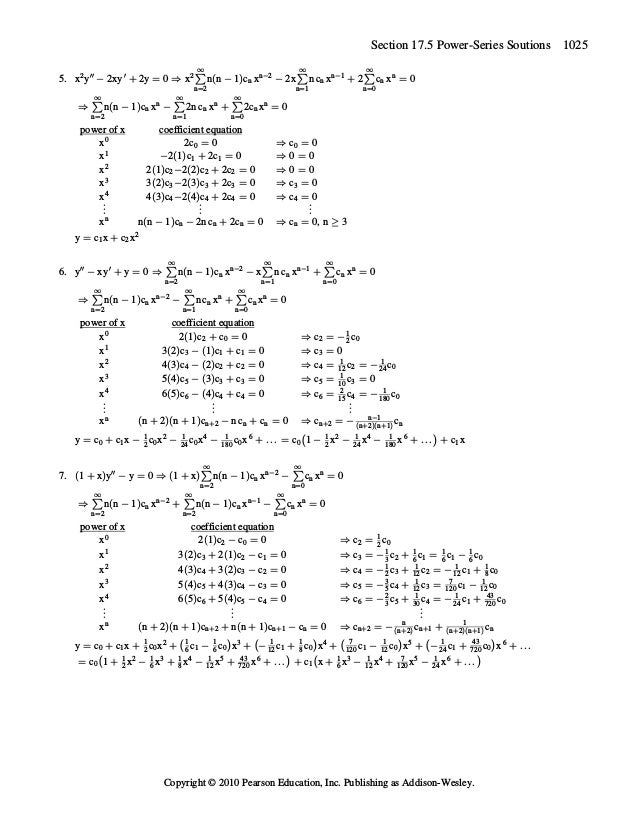 Section 17.5 Power-Series Soutions 1025
5. x²y″ − 2xy′ + 2y = 0 ⇒ x² ∞∑n=2 n(n − 1)cₙ xⁿ⁻² − 2x ∞∑n=1 n cₙ xⁿ⁻¹ + 2 ∞∑n=0 cₙ xⁿ = 0
⇒ ∞∑n=2 n(n − 1)cₙ xⁿ − ∞∑n=1 2n cₙ xⁿ + ∞∑n=0 2cₙxⁿ = 0
power of x coefficient equation
x⁰ 2c₀ = 0 ⇒ c₀ = 0
x¹ −2(1)c₁ + 2c₁ = 0 ⇒ 0 = 0
x² 2(1)c₂ −2(2)c₂ + 2c₂ = 0 ⇒ 0 = 0
x³ 3(2)c₃ −2(3)c₃ + 2c₃ = 0 ⇒ c₃ = 0
x⁴ 4(3)c₄ −2(4)c₄ + 2c₄ = 0 ⇒ c₄ = 0
⋮ ⋮ ⋮
xⁿ n(n − 1)cₙ − 2n cₙ + 2cₙ = 0 ⇒ cₙ = 0, n ≥ 3
y = c₁x + c₂x²
6. y″ − xy′ + y = 0 ⇒ ∞∑n=2 n(n − 1)cₙ xⁿ⁻² − x ∞∑n=1 n cₙ xⁿ⁻¹ + ∞∑n=0 cₙ xⁿ = 0
⇒ ∞∑n=2 n(n − 1)cₙ xⁿ⁻² − ∞∑n=1 ncₙ xⁿ + ∞∑n=0 cₙxⁿ = 0
power of x coefficient equation
x⁰ 2(1)c₂ + c₀ = 0 ⇒ c₂ = −1/2 c₀
x¹ 3(2)c₃ − (1)c₁ + c₁ = 0 ⇒ c₃ = 0
x² 4(3)c₄ − (2)c₂ + c₂ = 0 ⇒ c₄ = 1/12 c₂ = −1/24 c₀
x³ 5(4)c₅ − (3)c₃ + c₃ = 0 ⇒ c₅ = 1/10 c₃ = 0
x⁴ 6(5)c₆ − (4)c₄ + c₄ = 0 ⇒ c₆ = 2/15 c₄ = −1/180 c₀
⋮ ⋮ ⋮
xⁿ (n + 2)(n + 1)cₙ₊₂ − n cₙ + cₙ = 0 ⇒ cₙ₊₂ = −(n−1)/((n+2)(n+1)) cₙ
y = c₀ + c₁x − 1/2 c₀x² − 1/24 c₀x⁴ − 1/180 c₀x⁶ + … = c₀(1 − 1/2 x² − 1/24 x⁴ − 1/180 x⁶ + …) + c₁x
7. (1 + x)y″ − y = 0 ⇒ (1 + x) ∞∑n=2 n(n − 1)cₙ xⁿ⁻² − ∞∑n=0 cₙ xⁿ = 0
⇒ ∞∑n=2 n(n − 1)cₙ xⁿ⁻² + ∞∑n=2 n(n − 1)cₙxⁿ⁻¹ − ∞∑n=0 cₙ xⁿ = 0
power of x coefficient equation
x⁰ 2(1)c₂ − c₀ = 0 ⇒ c₂ = 1/2 c₀
x¹ 3(2)c₃ + 2(1)c₂ − c₁ = 0 ⇒ c₃ = −1/3 c₂ + 1/6 c₁ = 1/6 c₁ − 1/6 c₀
x² 4(3)c₄ + 3(2)c₃ − c₂ = 0 ⇒ c₄ = −1/2 c₃ + 1/12 c₂ = −1/12 c₁ + 1/8 c₀
x³ 5(4)c₅ + 4(3)c₄ − c₃ = 0 ⇒ c₅ = −3/5 c₄ + 1/12 c₃ = 7/120 c₁ − 1/12 c₀
x⁴ 6(5)c₆ + 5(4)c₅ − c₄ = 0 ⇒ c₆ = −2/3 c₅ + 1/30 c₄ = −1/24 c₁ + 43/720 c₀
⋮ ⋮ ⋮
xⁿ (n + 2)(n + 1)cₙ₊₂ + n(n + 1)cₙ₊₁ − cₙ = 0 ⇒ cₙ₊₂ = −n/(n+2) cₙ₊₁ + 1/((n+2)(n+1)) cₙ
y = c₀ + c₁x + 1/2 c₀x² + (1/6 c₁ − 1/6 c₀)x³ + (−1/12 c₁ + 1/8 c₀)x⁴ + (7/120 c₁ − 1/12 c₀)x⁵ + (−1/24 c₁ + 43/720 c₀)x⁶ + …
= c₀(1 + 1/2 x² − 1/6 x³ + 1/8 x⁴ − 1/12 x⁵ + 43/720 x⁶ + …) + c₁(x + 1/6 x³ − 1/12 x⁴ + 7/120 x⁵ − 1/24 x⁶ + …)
Copyright © 2010 Pearson Education, Inc. Publishing as Addison-Wesley.